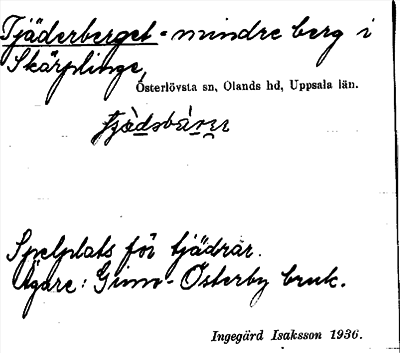 Tjäderberget - mindre berg i
Skärplinge,
Österlövsta sn, Olands hd, Uppsala län.
Spelplats för tjädrar.
Ägare: Gimo-Österby bruk.
Ingegärd Isaksson 1936.